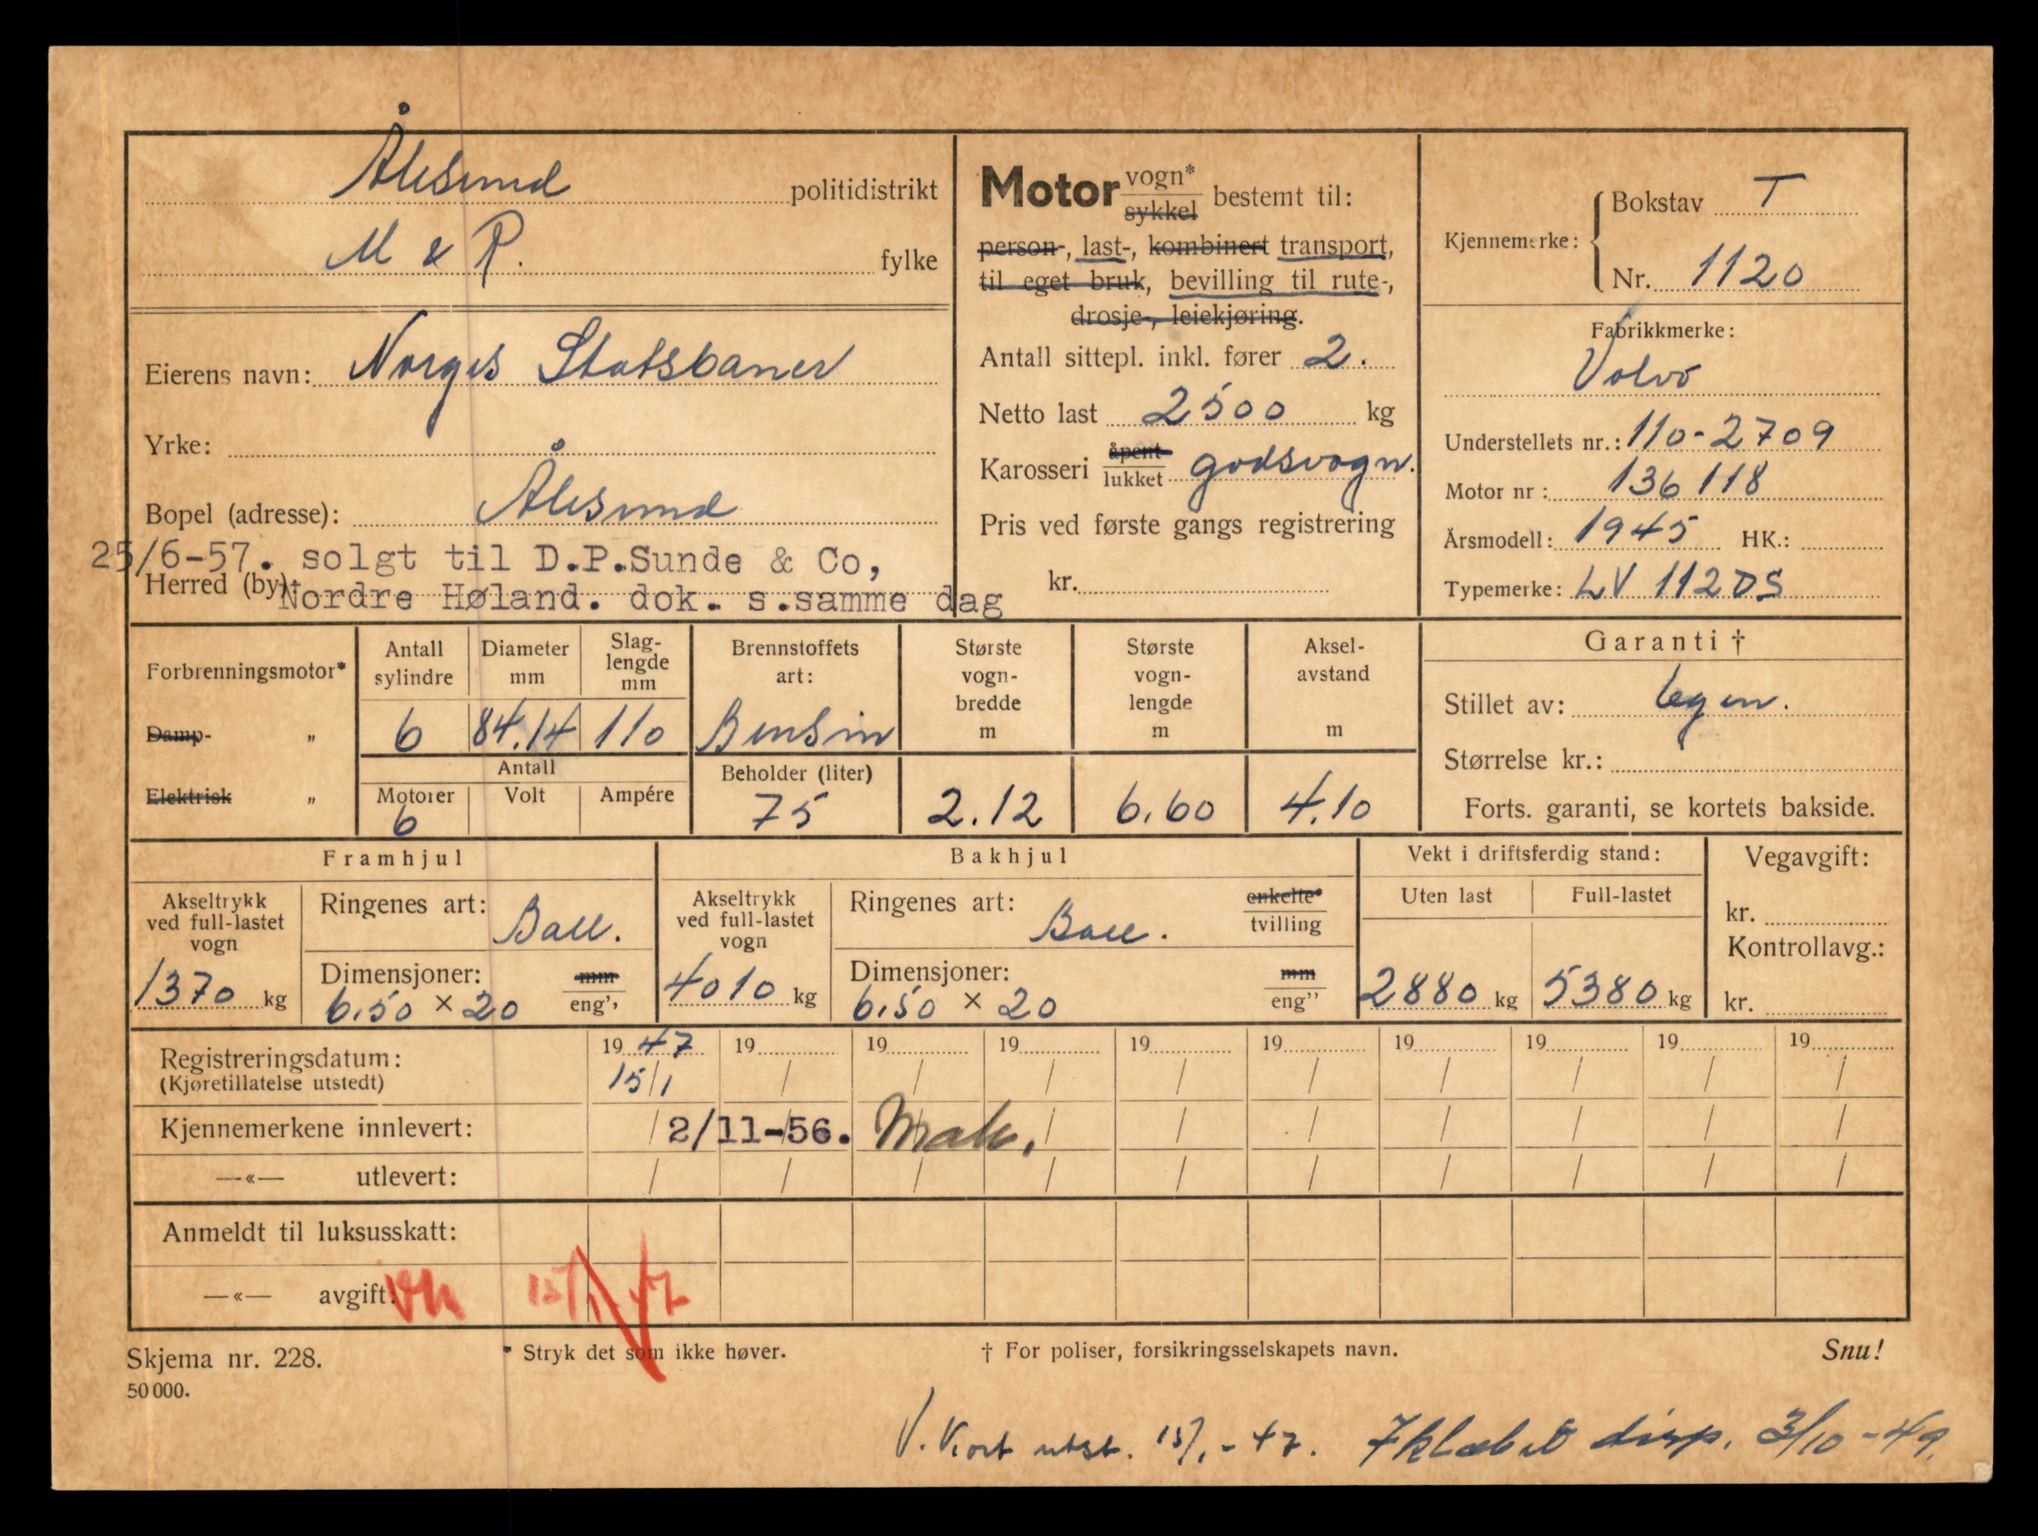 Ålesund politidistrikt
M & R. fylke
Eierens navn: Norges Statsbaner
Yrke:
Bopel (adresse): Ålesund
25/6-57. solgt til D.P.Sunde & Co,
Herred (by):
Nordre Høland. dok. s.samme dag
Motor vogn* sykkel bestemt til:
person-, last-, kombinert transport,
til eget bruk, bevilling til rute-,
drosje-, leiekjøring.
Antall sittepl. inkl. fører 2.
Netto last 2500 kg
Karosseri åpent lukket godsvogn.
Pris ved første gangs registrering
kr.
Kjennemerke: Bokstav T
Nr. 1120
Fabrikkmerke:
Volvo
Understellets nr.: 110-2709
Motor nr: 136118
Årsmodell: 1945 HK.:
Typemerke: LV 112DS
Forbrenningsmotor*
Damp- "
Elektrisk "
Antall sylindre
6
Diameter mm
84.14
Slag-
lengde
mm
110
Antall
Motorer Volt Ampére
6
Brennstoffets
art:
Bensin
Beholder (liter)
75
Største
vogn-
bredde
m
2.12
Største
vogn-
lengde
m
6.60
Aksel-
avstand
m
4.10
Garanti †
Stillet av: Egen.
Størrelse kr.:
Forts. garanti, se kortets bakside.
Framhjul
Akseltrykk
ved full-lastet
vogn
1370 kg
Ringenes art: Ball.
Dimensjoner: mm
6.50 × 20 eng''
Bakhjul
Akseltrykk
ved full-lastet
vogn
4010 kg
Ringenes art: Ball. enkelte* tvilling
Dimensjoner: mm
6.50 × 20 eng''
Vekt i driftsferdig stand:
Uten last Full-lastet
2880 kg 5380 kg
Vegavgift:
kr.
Kontrollavg.:
kr.
Registreringsdatum: 19 47 19 19 19 19 19 19 19 19 19
(Kjøretillatelse utstedt) 15/1 / / / / / / / / /
Kjennemerkene innlevert: / 2/11-56. Mak. / / / / / / /
—«— utlevert: / / / / / / / / / /
Anmeldt til luksusskatt:
—«— avgift: 15/1 47
Skjema nr. 228. * Stryk det som ikke høver. † For poliser, forsikringsselskapets navn. Snu!
50 000.
V. Kort utst. 15/1-47. disp. 3/10-49.